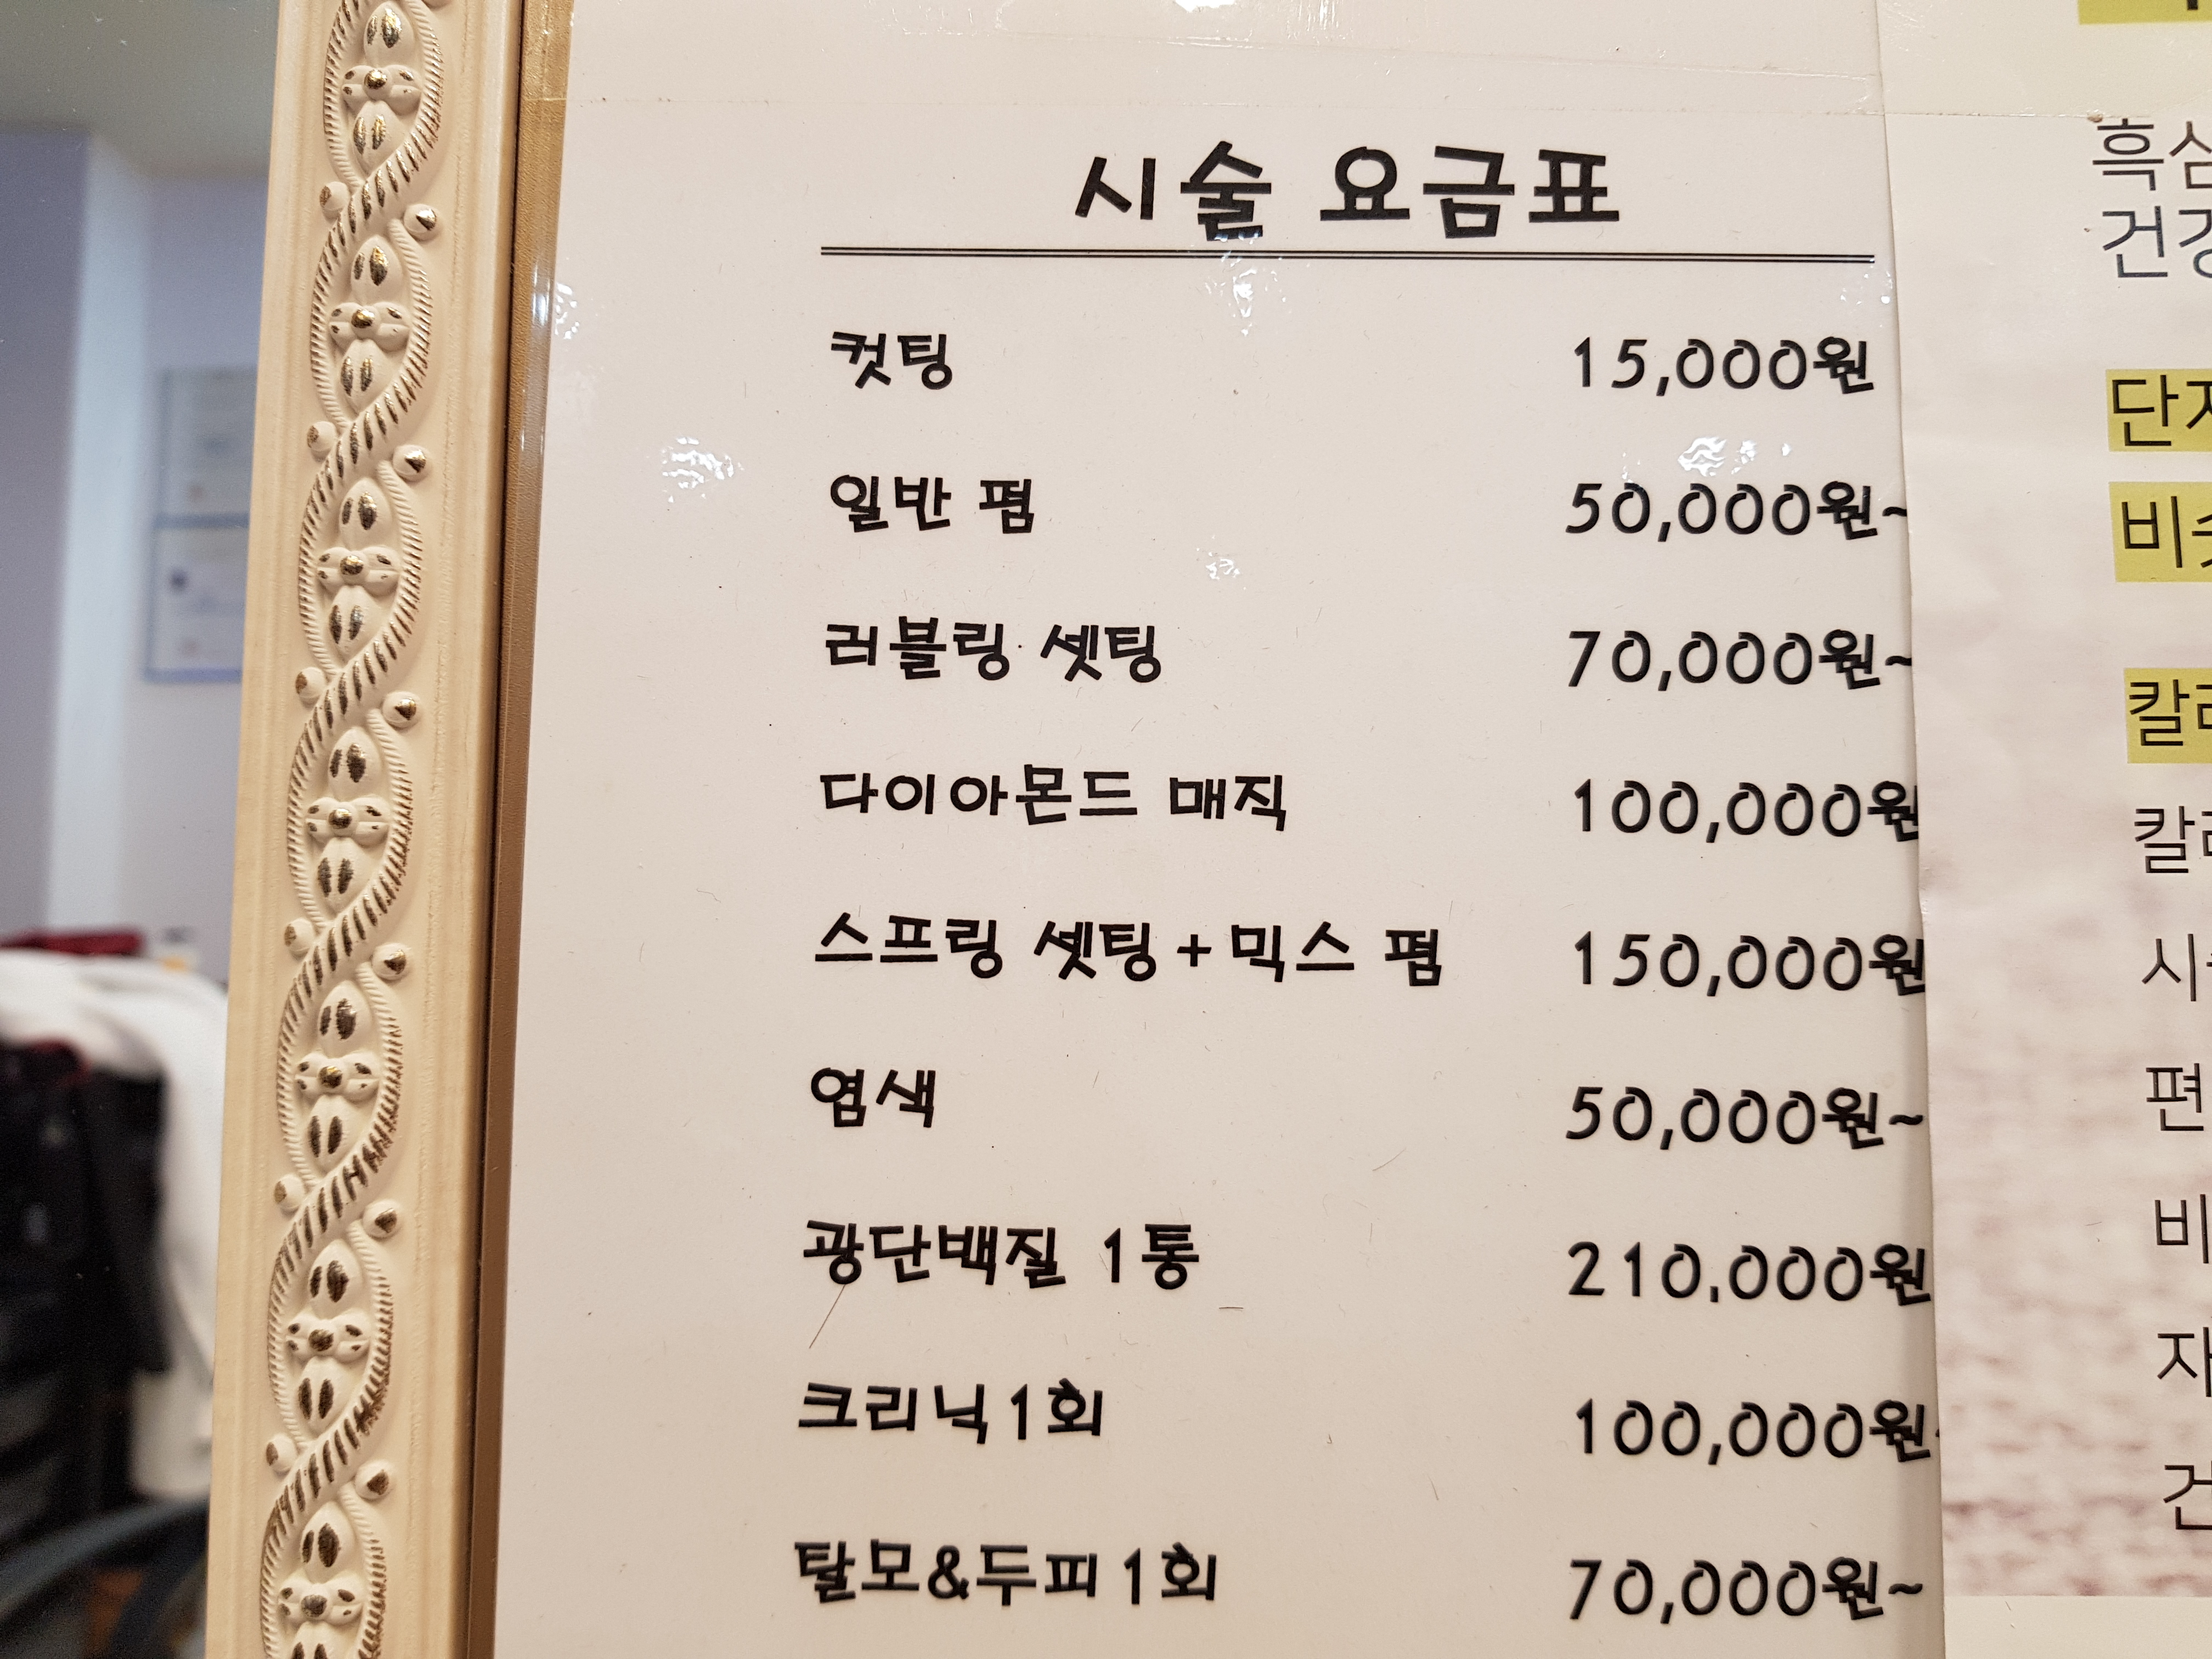 시술 요금표
컷팅 15,000원
일반 펌 50,000원~
러블링 셋팅 70,000원~
다이아몬드 매직 100,000원
스프링 셋팅+믹스 펌 150,000원
염색 50,000원~
광단백질 1통 210,000원
크리닉1회 100,000원
탈모&두피1회 70,000원~
흑
건
단
비
칼
칼
편
비